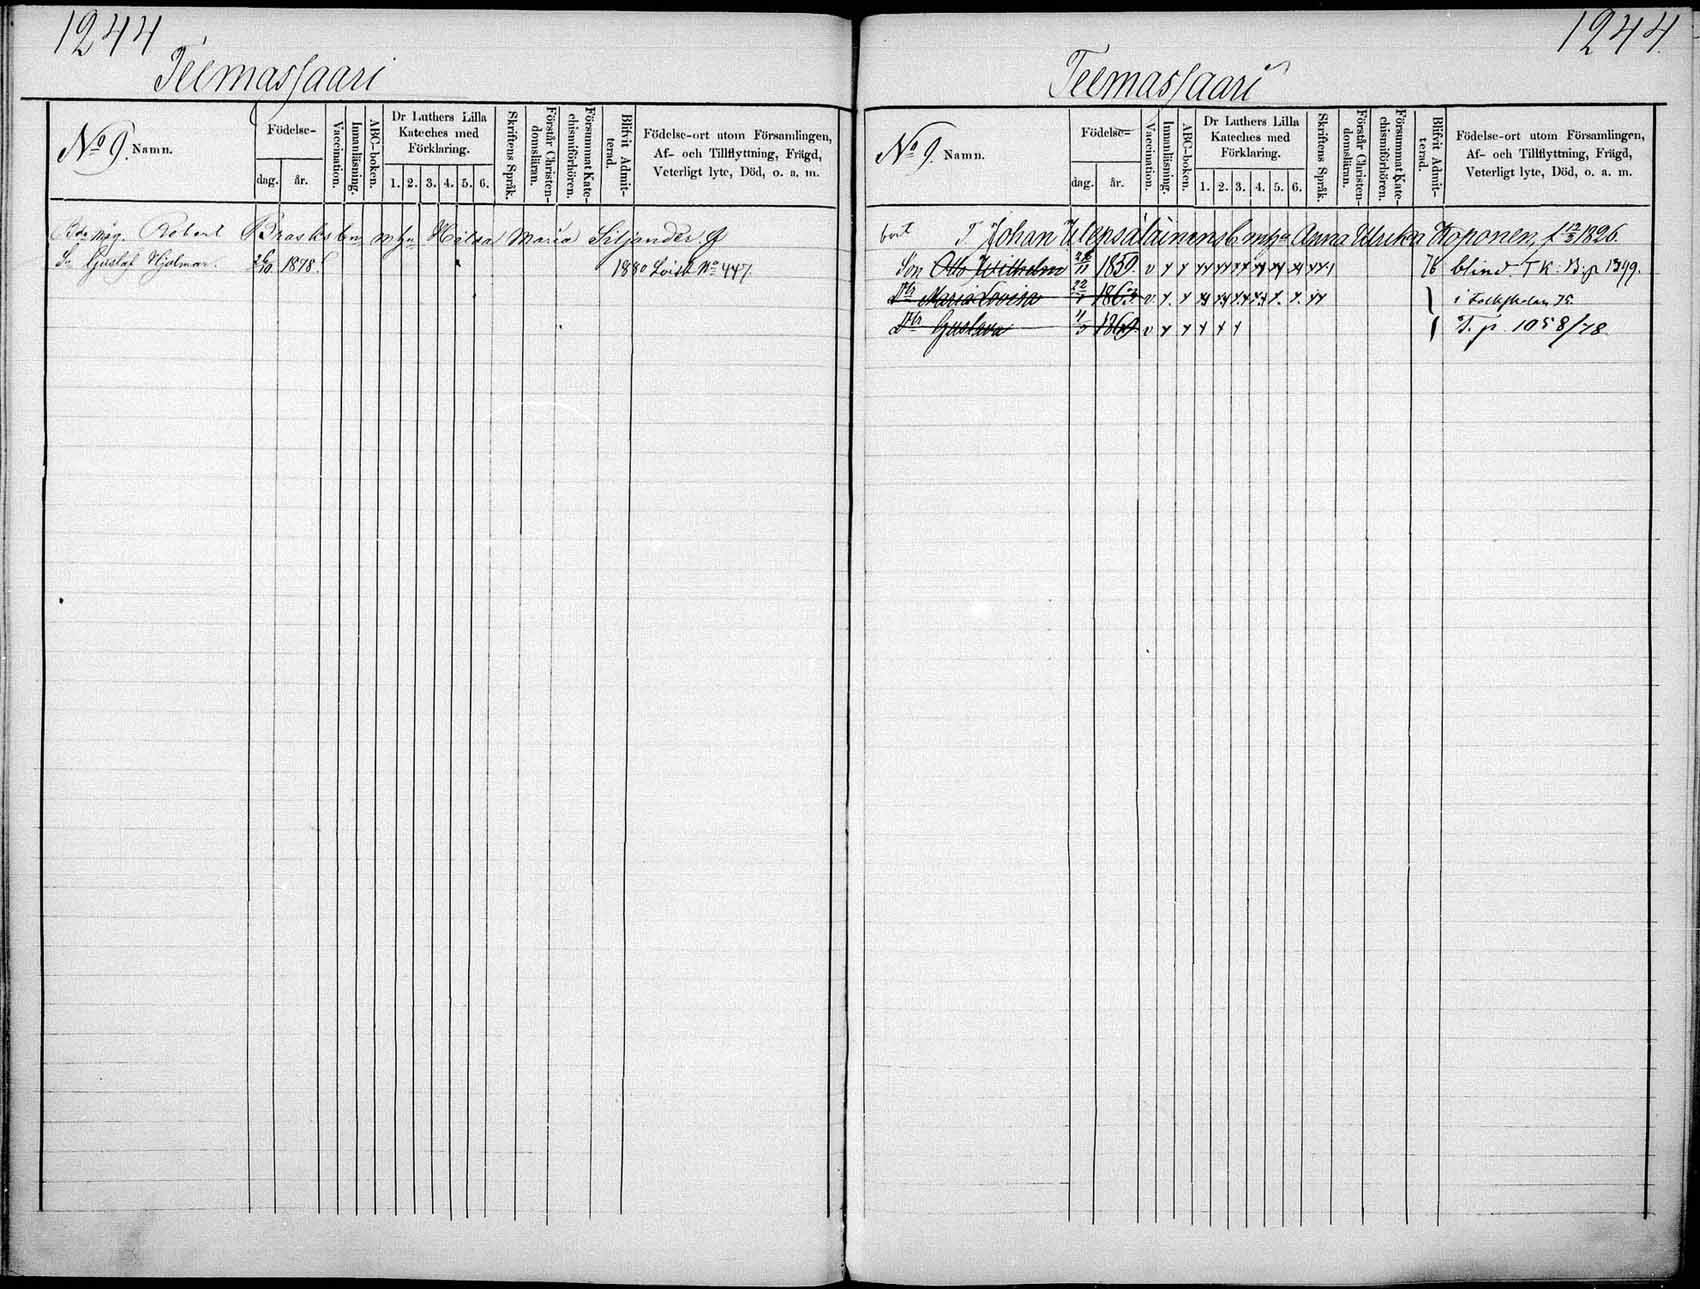 1244
Teemassaari
No 9. Namn.
Födelse-
dag. år.
Vaccination.
Innanläsning.
ABC-boken.
Dr Luthers Lilla
Kateches med
Förklaring.
1. 2. 3. 4. 5. 6.
Skriftens Språk.
Förstår Christen-
domsläran.
Försummat Kate-
chismiförhören.
Blifvit Admit-
terad.
Födelse-ort utom Församlingen,
Af- och Tillflyttning, Frägd,
Veterligt lyte, Död, o. a. m.
Robert Brasks bn m hu Hilda Maria Siljander
Sn Gustaf Hjalmar. 26/10 1878. 1880 No 447.
1244.
Teemassaari
No 9. Namn.
Födelse-
dag. år.
Vaccination.
Innanläsning.
ABC-boken.
Dr Luthers Lilla
Kateches med
Förklaring.
1. 2. 3. 4. 5. 6.
Skriftens Språk.
Förstår Christen-
domsläran.
Försummat Kate-
chismiförhören.
Blifvit Admit-
terad.
Födelse-ort utom Församlingen,
Af- och Tillflyttning, Frägd,
Veterligt lyte, Död, o. a. m.
bort T Johan Ulepsäläinens bn m hu Anna Ulrika Koponen, f 12/3 1826.
Son Otto Wilhelm 1859. v 76 blind T K: B. p 1399.
Dtr Maria Lovisa 1863 v. i Folkskolan 75
Dtr Gustava 1869. v T. p. 1058/78